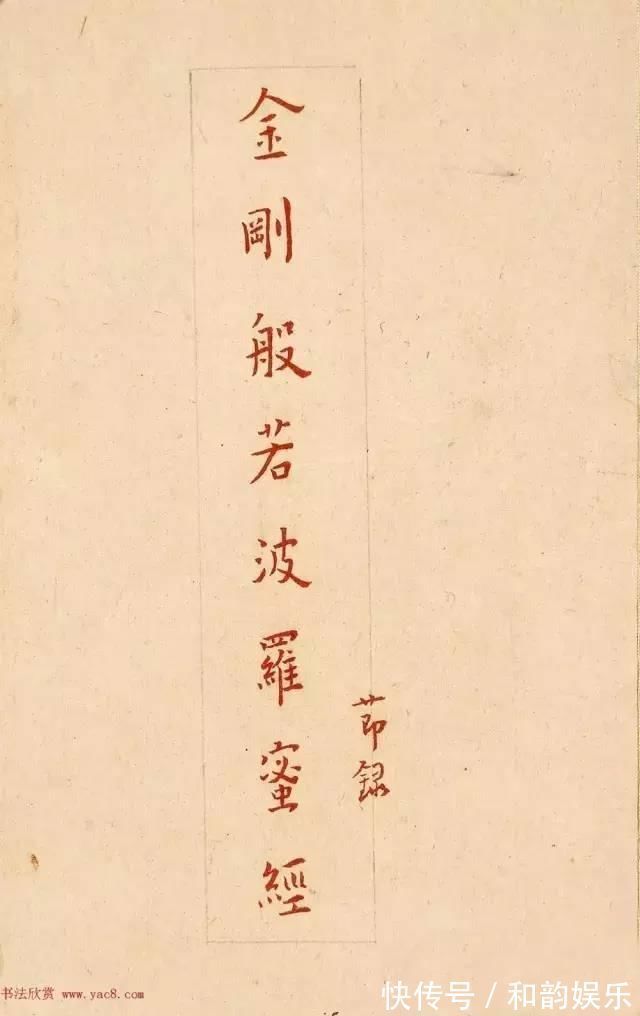 金剛般若波羅蜜經
節錄
书法欣赏 www.yac8.com
快传号/和韵娱乐